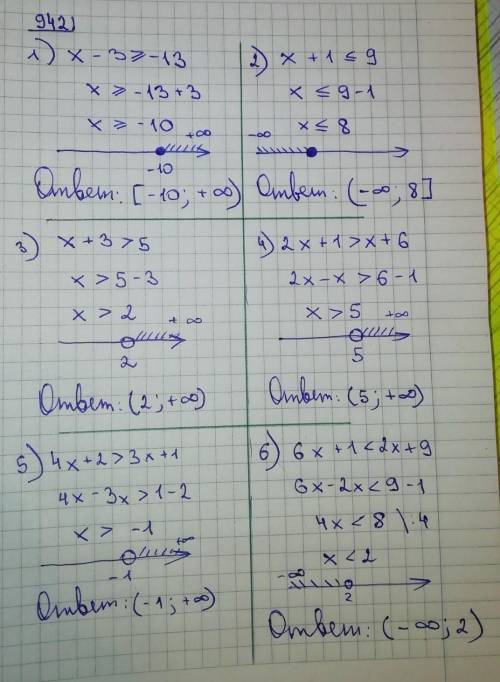 942)
1) x - 3 ⩾ -13
x ⩾ -13+3
x ⩾ -10
+∞
-10
Ответ: [-10; +∞)
2) x + 1 ≤ 9
x ≤ 9-1
x ≤ 8
-∞
Ответ: (-∞; 8]
3) x + 3 > 5
x > 5 - 3
x > 2
+ ∞
2
Ответ: (2; +∞)
4) 2x + 1 > x + 6
2x - x > 6 - 1
x > 5
+∞
5
Ответ: (5; +∞)
5) 4x + 2 > 3x + 1
4x - 3x > 1 - 2
x > -1
+∞
-1
Ответ: (-1; +∞)
6) 6x + 1 < 2x + 9
6x - 2x < 9 - 1
4x < 8 \ :4
x < 2
-∞
2
Ответ: (-∞; 2)